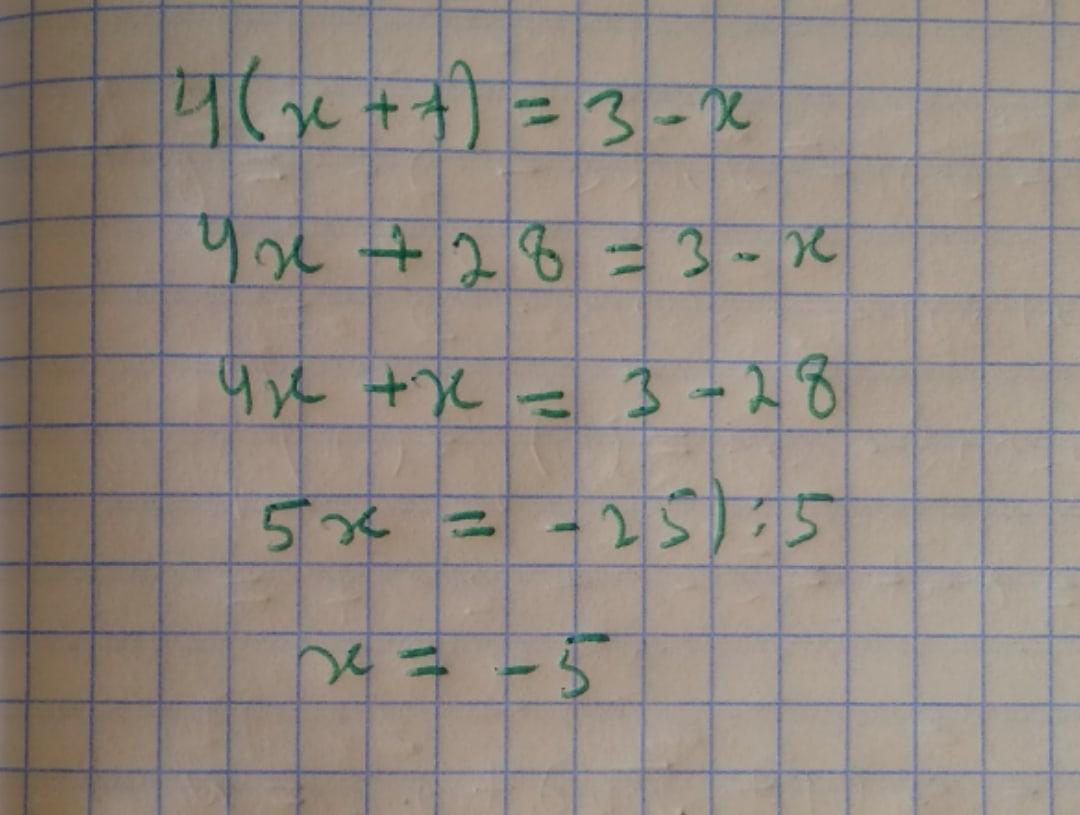 4(x+7)=3-x
4x+28=3-x
4x+x=3-28
5x=-25):5
x=-5